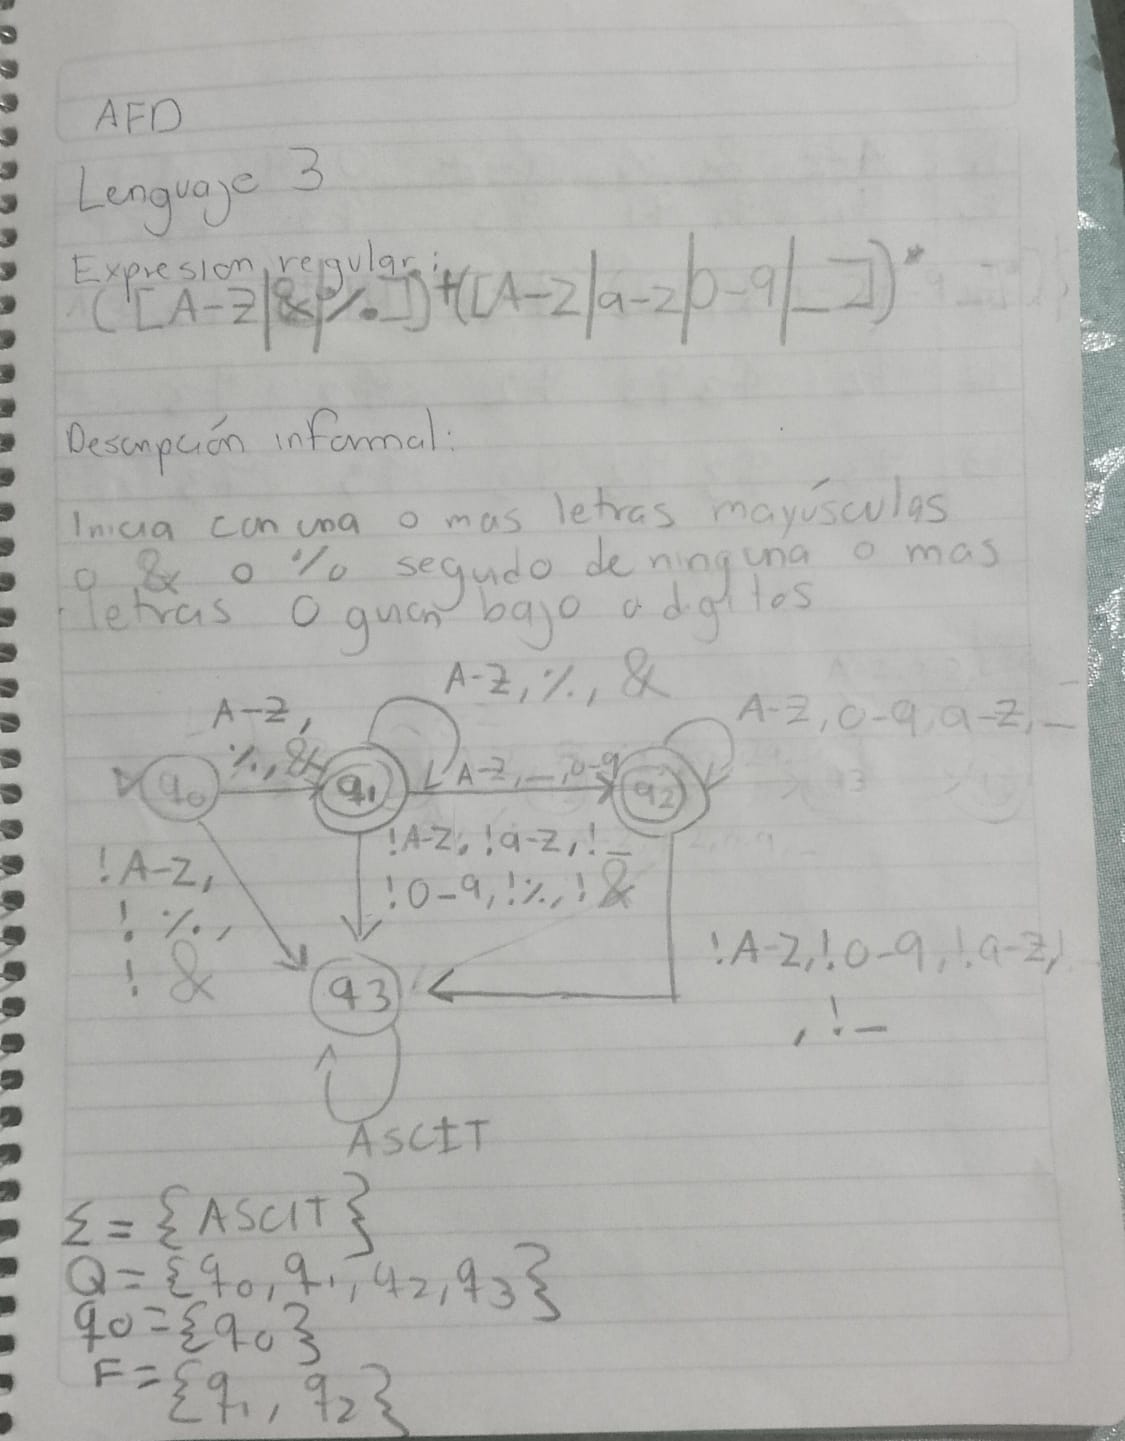 AFD
Lenguaje 3
Expresion regular:
([A-Z|&|%])+([A-Z|a-z|0-9|_])*
Descripción informal:
Inicia con una o mas letras mayúsculas
o & o % segudo de ninguna o mas
letras o guion bajo o digitos
A-Z, %, &
A-Z,
%, &
A-Z, 0-9, a-z, _
q0
q1
A-Z, _, 0-9
q2
!A-Z,
! %,
! &
!A-Z, !a-z, !_
!0-9, !%, !&
!A-Z, !0-9, !a-z,
, !_
q3
ASCII
Σ = {ASCII}
Q = {q0, q1, q2, q3}
q0 = {q0}
F = {q1, q2}